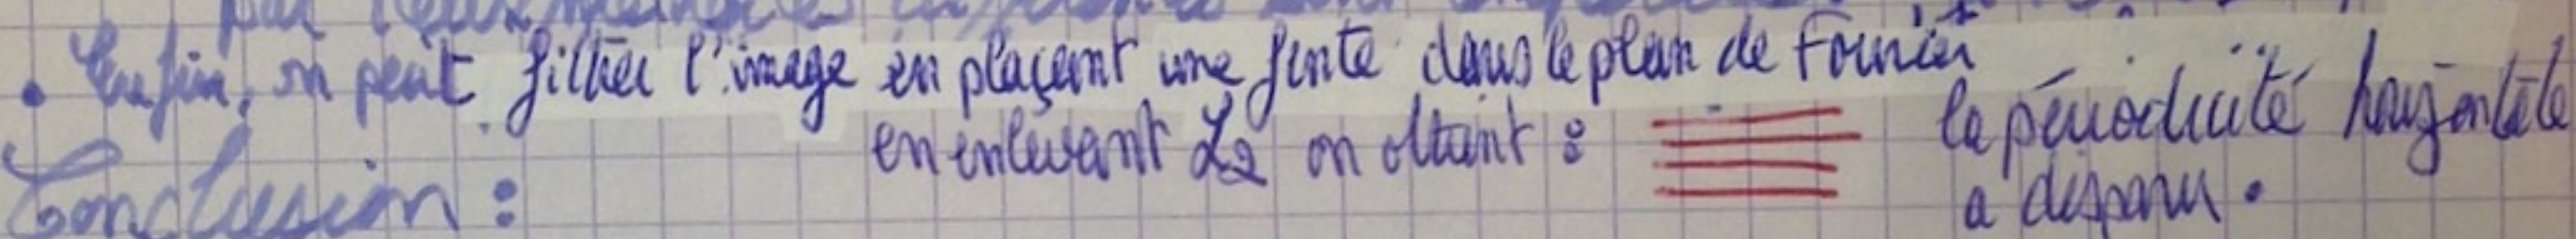 • Enfin, on peut filtrer l'image en plaçant une fente dans le plan de Fourier
en enlevant L2 on obtient :
la périodicité horizontale
a disparu.
Conclusion :